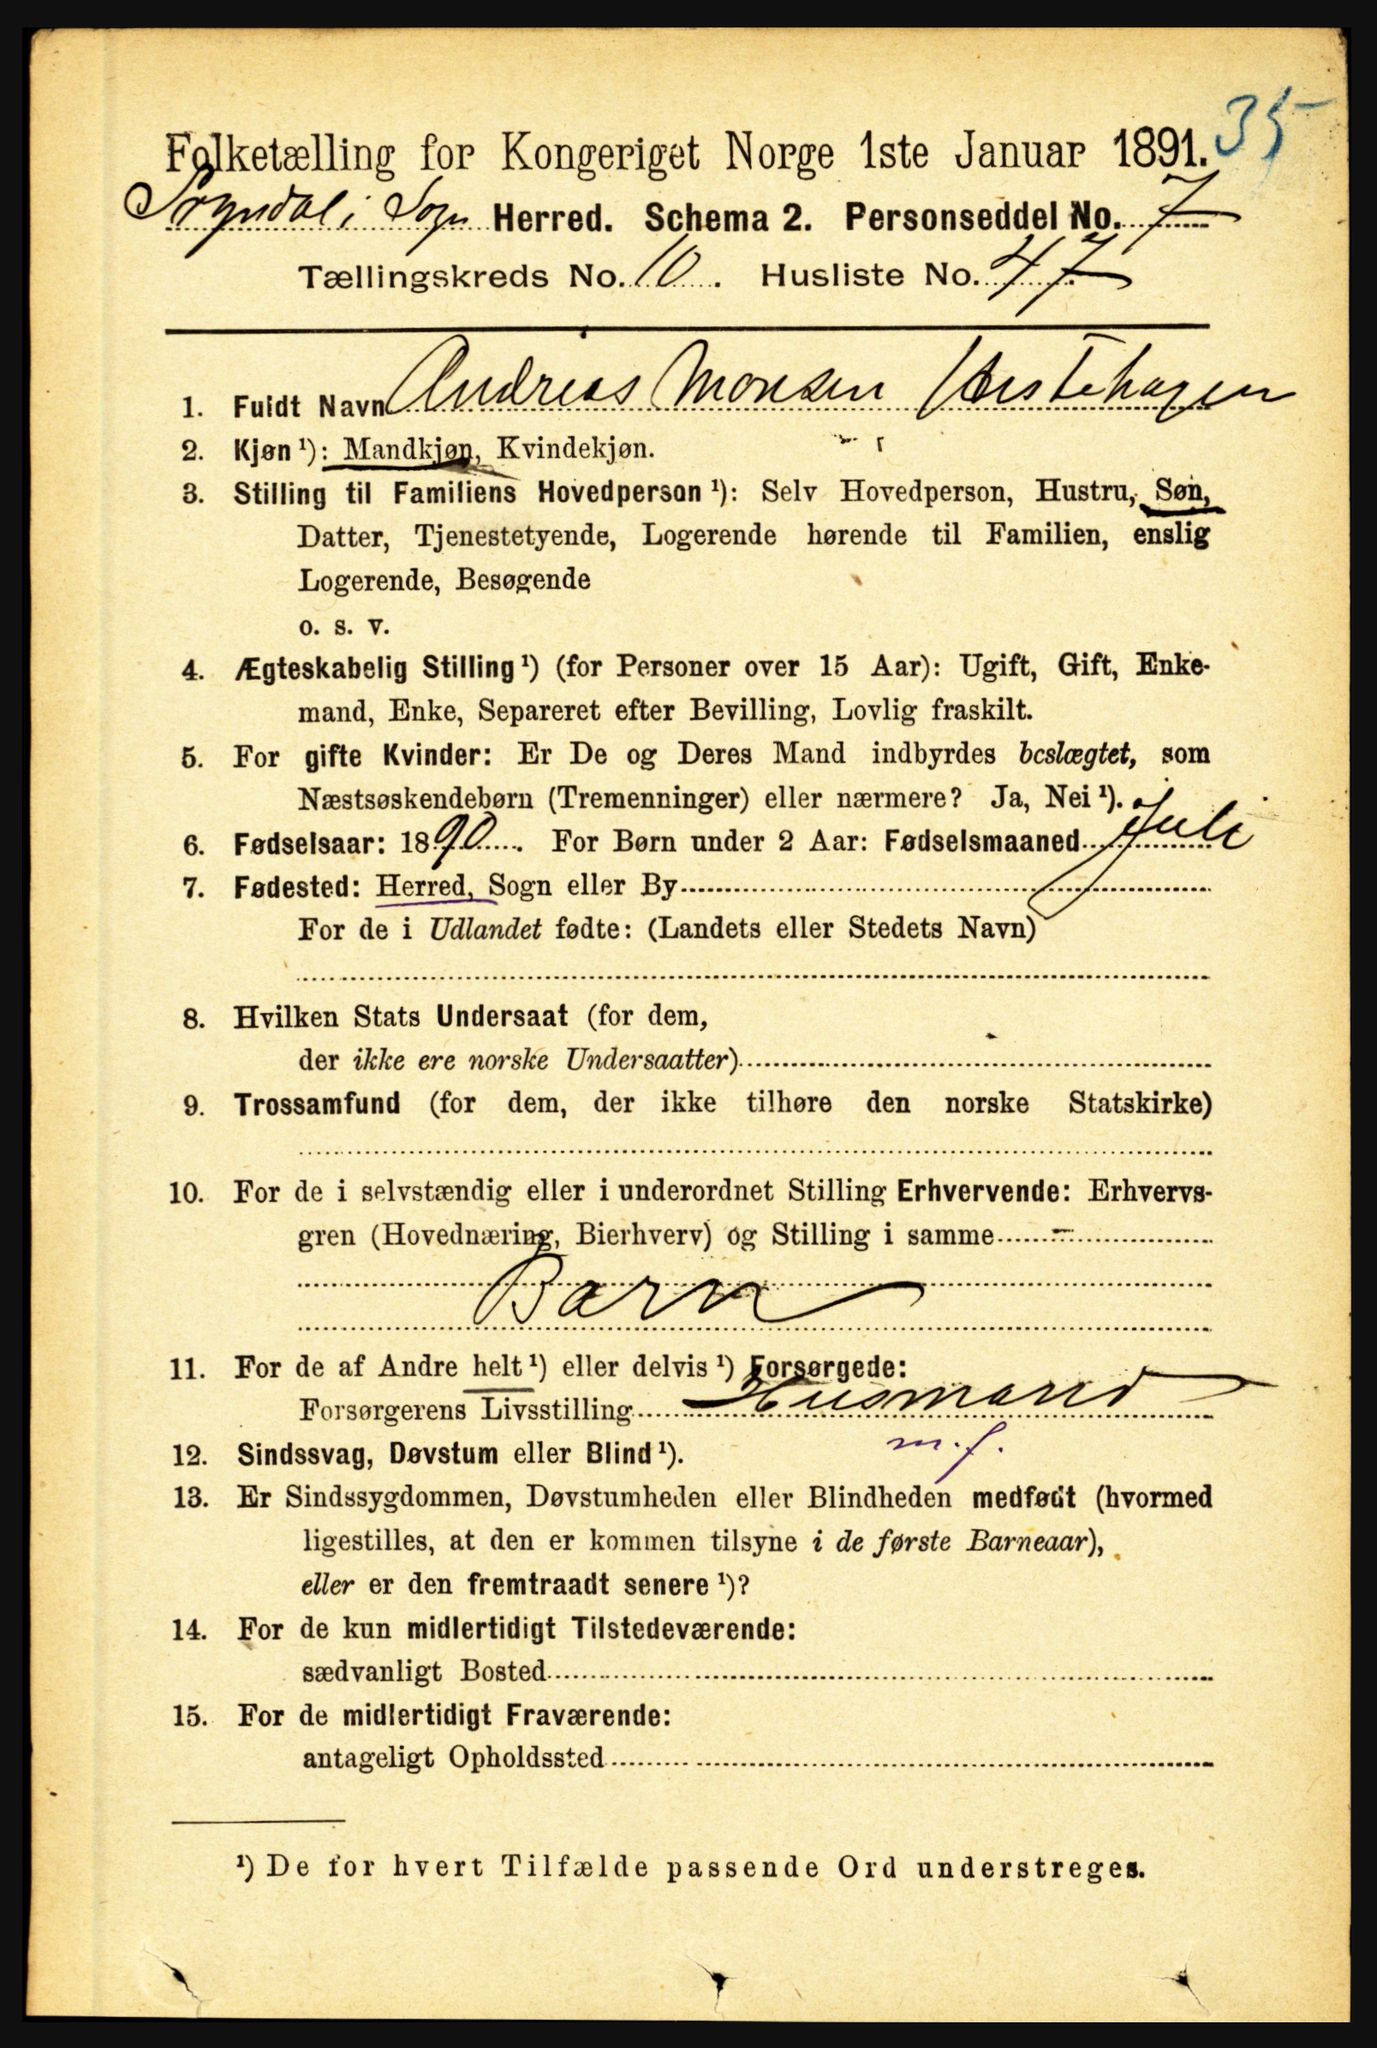 35
Folketælling for Kongeriget Norge 1ste Januar 1891.
Sogndal i Sogn Herred. Schema 2. Personseddel No. 7
Tællingskreds No. 10. Husliste No. 47.
1. Fuldt Navn Andreas Monsen Hestehagen
2. Kjøn ¹): Mandkjøn, Kvindekjøn.
3. Stilling til Familiens Hovedperson ¹): Selv Hovedperson, Hustru, Søn,
Datter, Tjenestetyende, Logerende hørende til Familien, enslig
Logerende, Besøgende
o. s. v.
4. Ægteskabelig Stilling ¹) (for Personer over 15 Aar): Ugift, Gift, Enke-
mand, Enke, Separeret efter Bevilling, Lovlig fraskilt.
5. For gifte Kvinder: Er De og Deres Mand indbyrdes beslægtet, som
Næstsøskendebørn (Tremenninger) eller nærmere? Ja, Nei ¹).
6. Fødselsaar: 1890. For Børn under 2 Aar: Fødselsmaaned Juli
7. Fødested: Herred, Sogn eller By
For de i Udlandet fødte: (Landets eller Stedets Navn)
8. Hvilken Stats Undersaat (for dem,
der ikke ere norske Undersaatter)
9. Trossamfund (for dem, der ikke tilhøre den norske Statskirke)
10. For de i selvstændig eller i underordnet Stilling Erhvervende: Erhvervs-
gren (Hovednæring, Bierhverv) og Stilling i samme -
Barn
11. For de af Andre helt ¹) eller delvis ¹) Forsørgede:
Forsørgerens Livsstilling Husmand
m. f.
12. Sindssvag, Døvstum eller Blind ¹).
13. Er Sindssygdommen, Døvstumheden eller Blindheden medfødt (hvormed
ligestilles, at den er kommen tilsyne i de første Barneaar),
eller er den fremtraadt senere ¹)?
14. For de kun midlertidigt Tilstedeværende:
sædvanligt Bosted
15. For de midlertidigt Fraværende:
antageligt Opholdssted
¹) De for hvert Tilfælde passende Ord understreges.